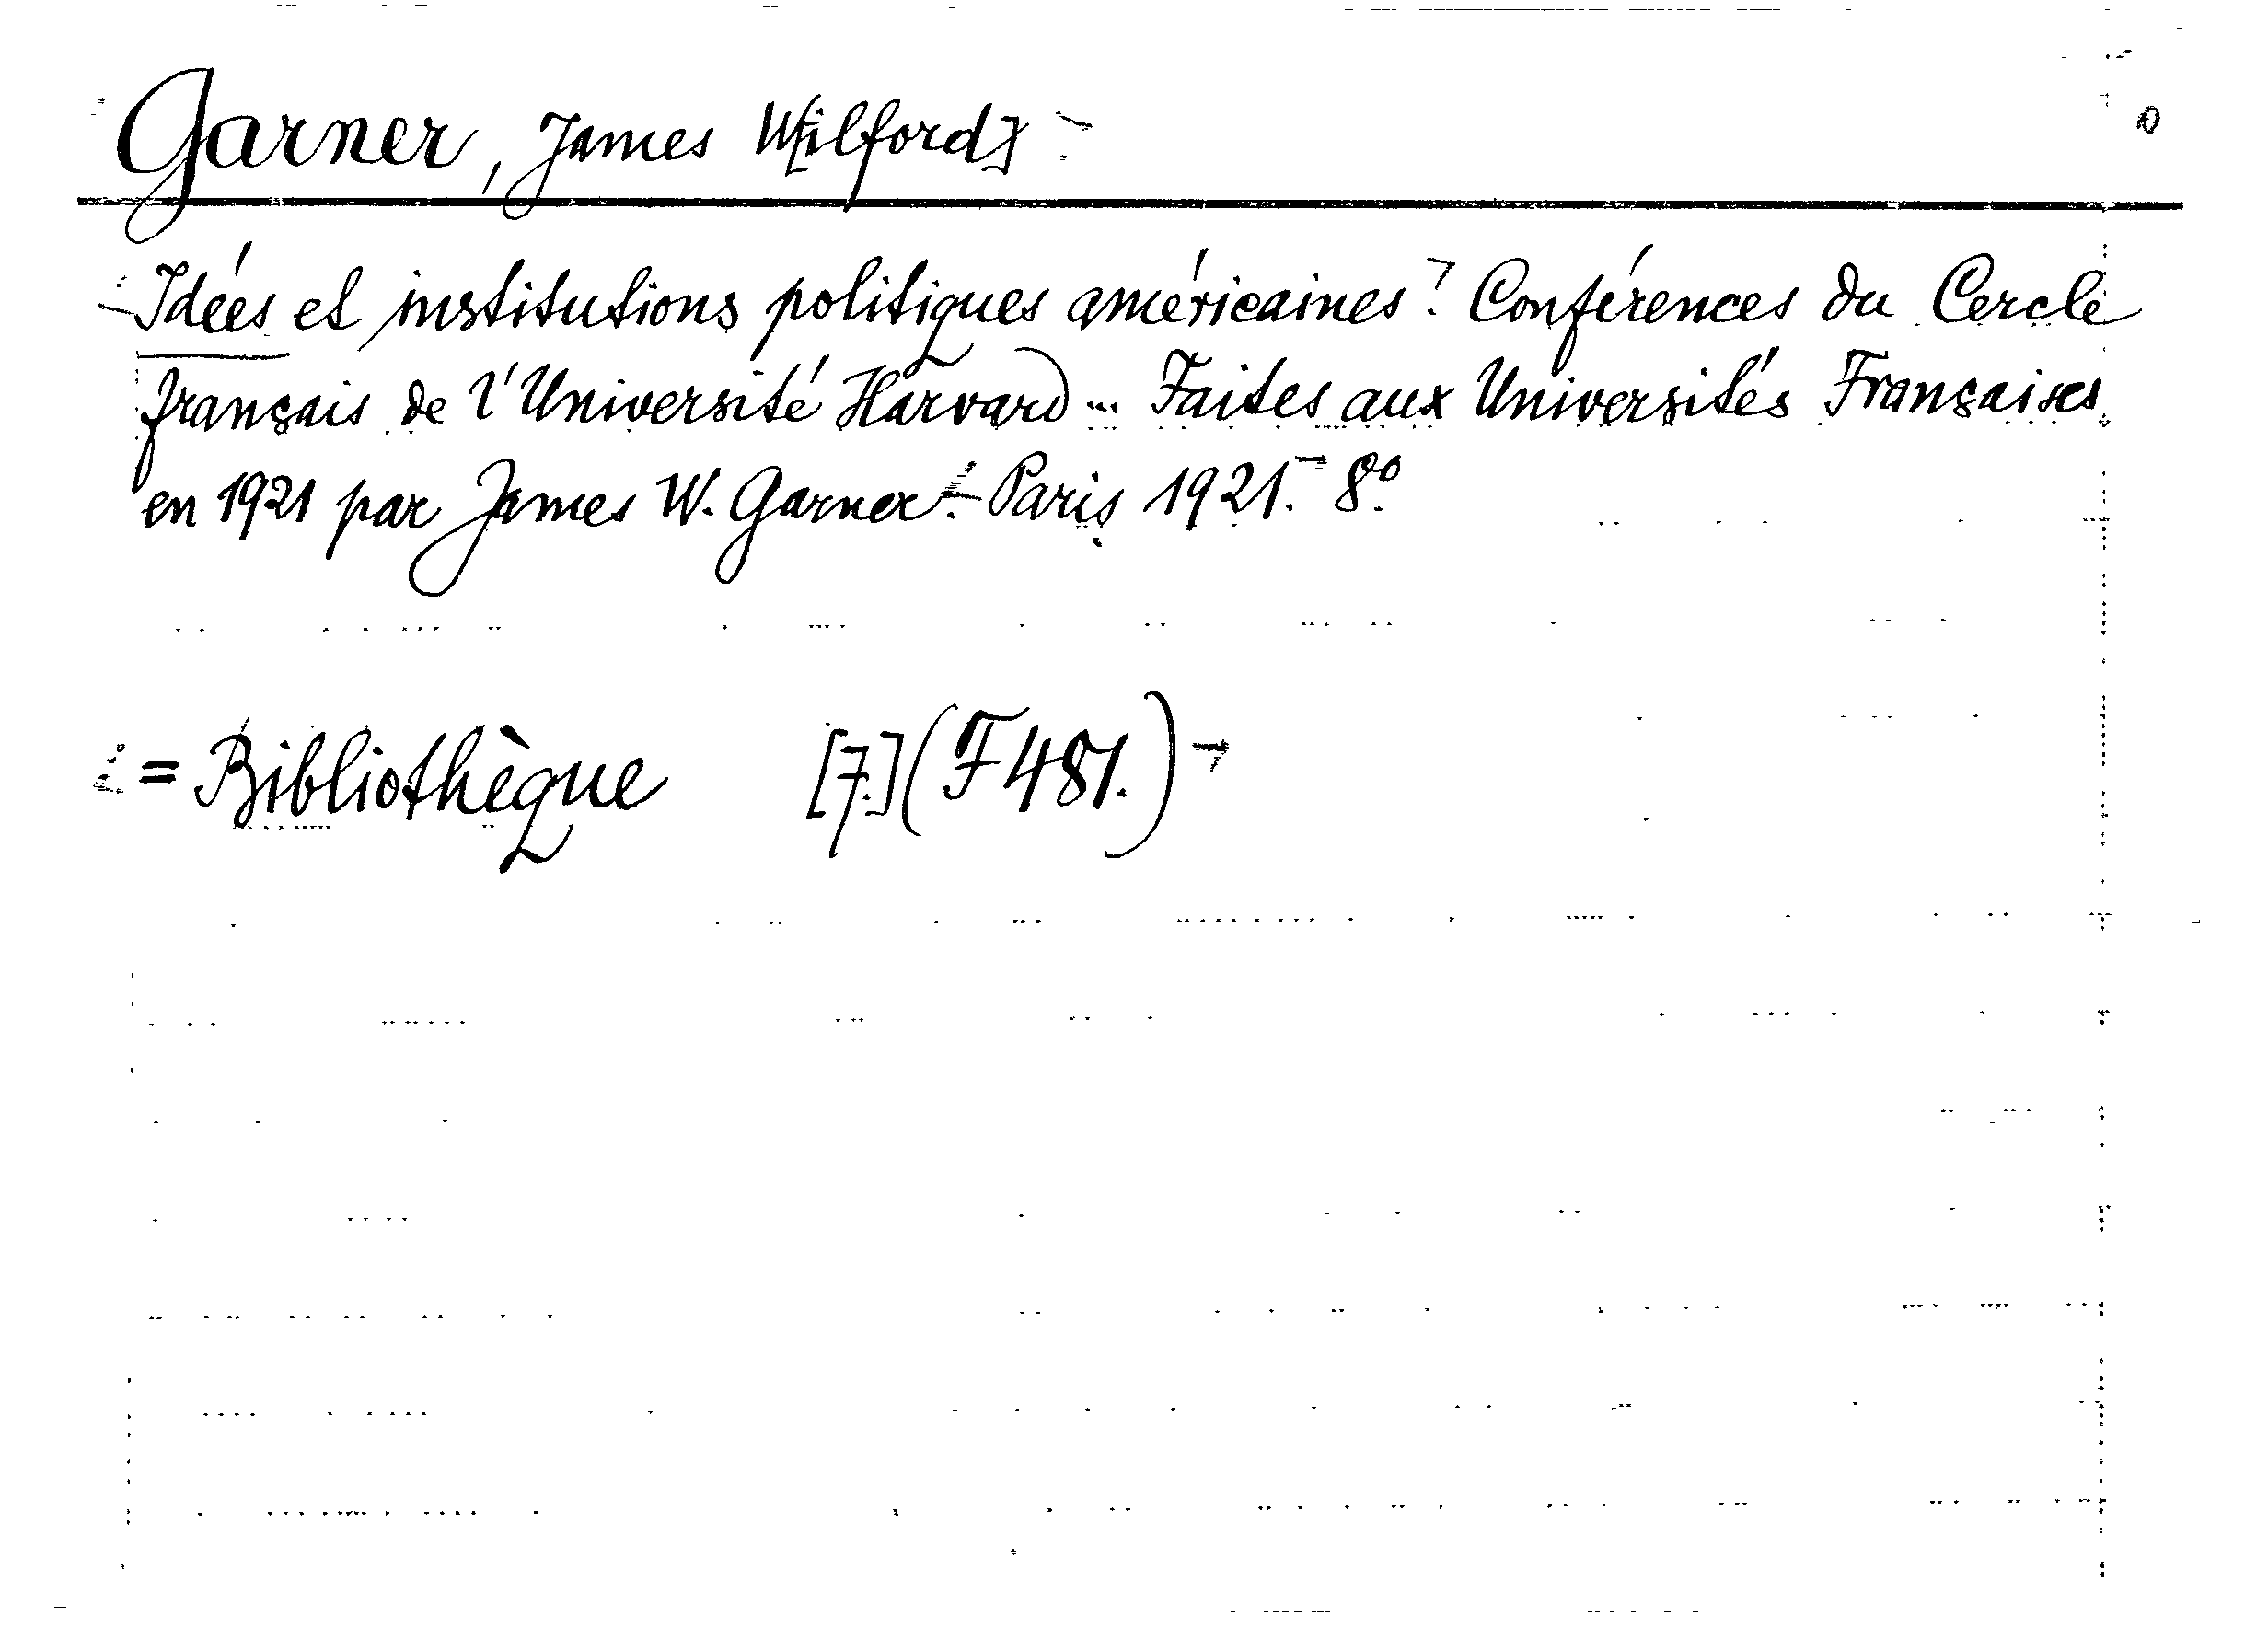 Garner, James W[ilford]
Idées et institutions politiques américaines. Conférences du Cercle
français de l'Université Harvard ... Faites aux Universités Françaises
en 1921 par James W. Garner. Paris 1921. 8°.
= Bibliothèque [7.] (F 481.)